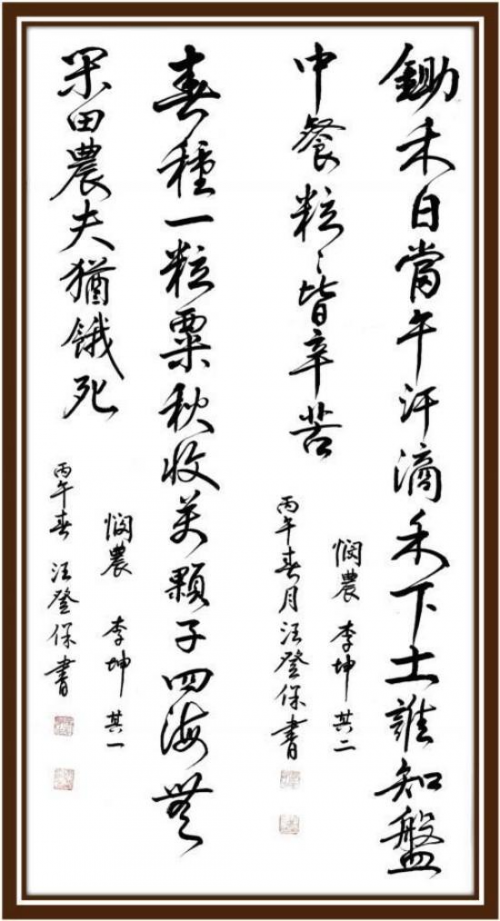 鋤禾日當午汗滴禾下土誰知盤
中餐粒々皆辛苦
憫農 李坤 其二
丙午春月汪登保書
春種一粒粟秋收萬顆子四海無
閑田農夫猶餓死
憫農 李坤 其一
丙午春 汪登保書